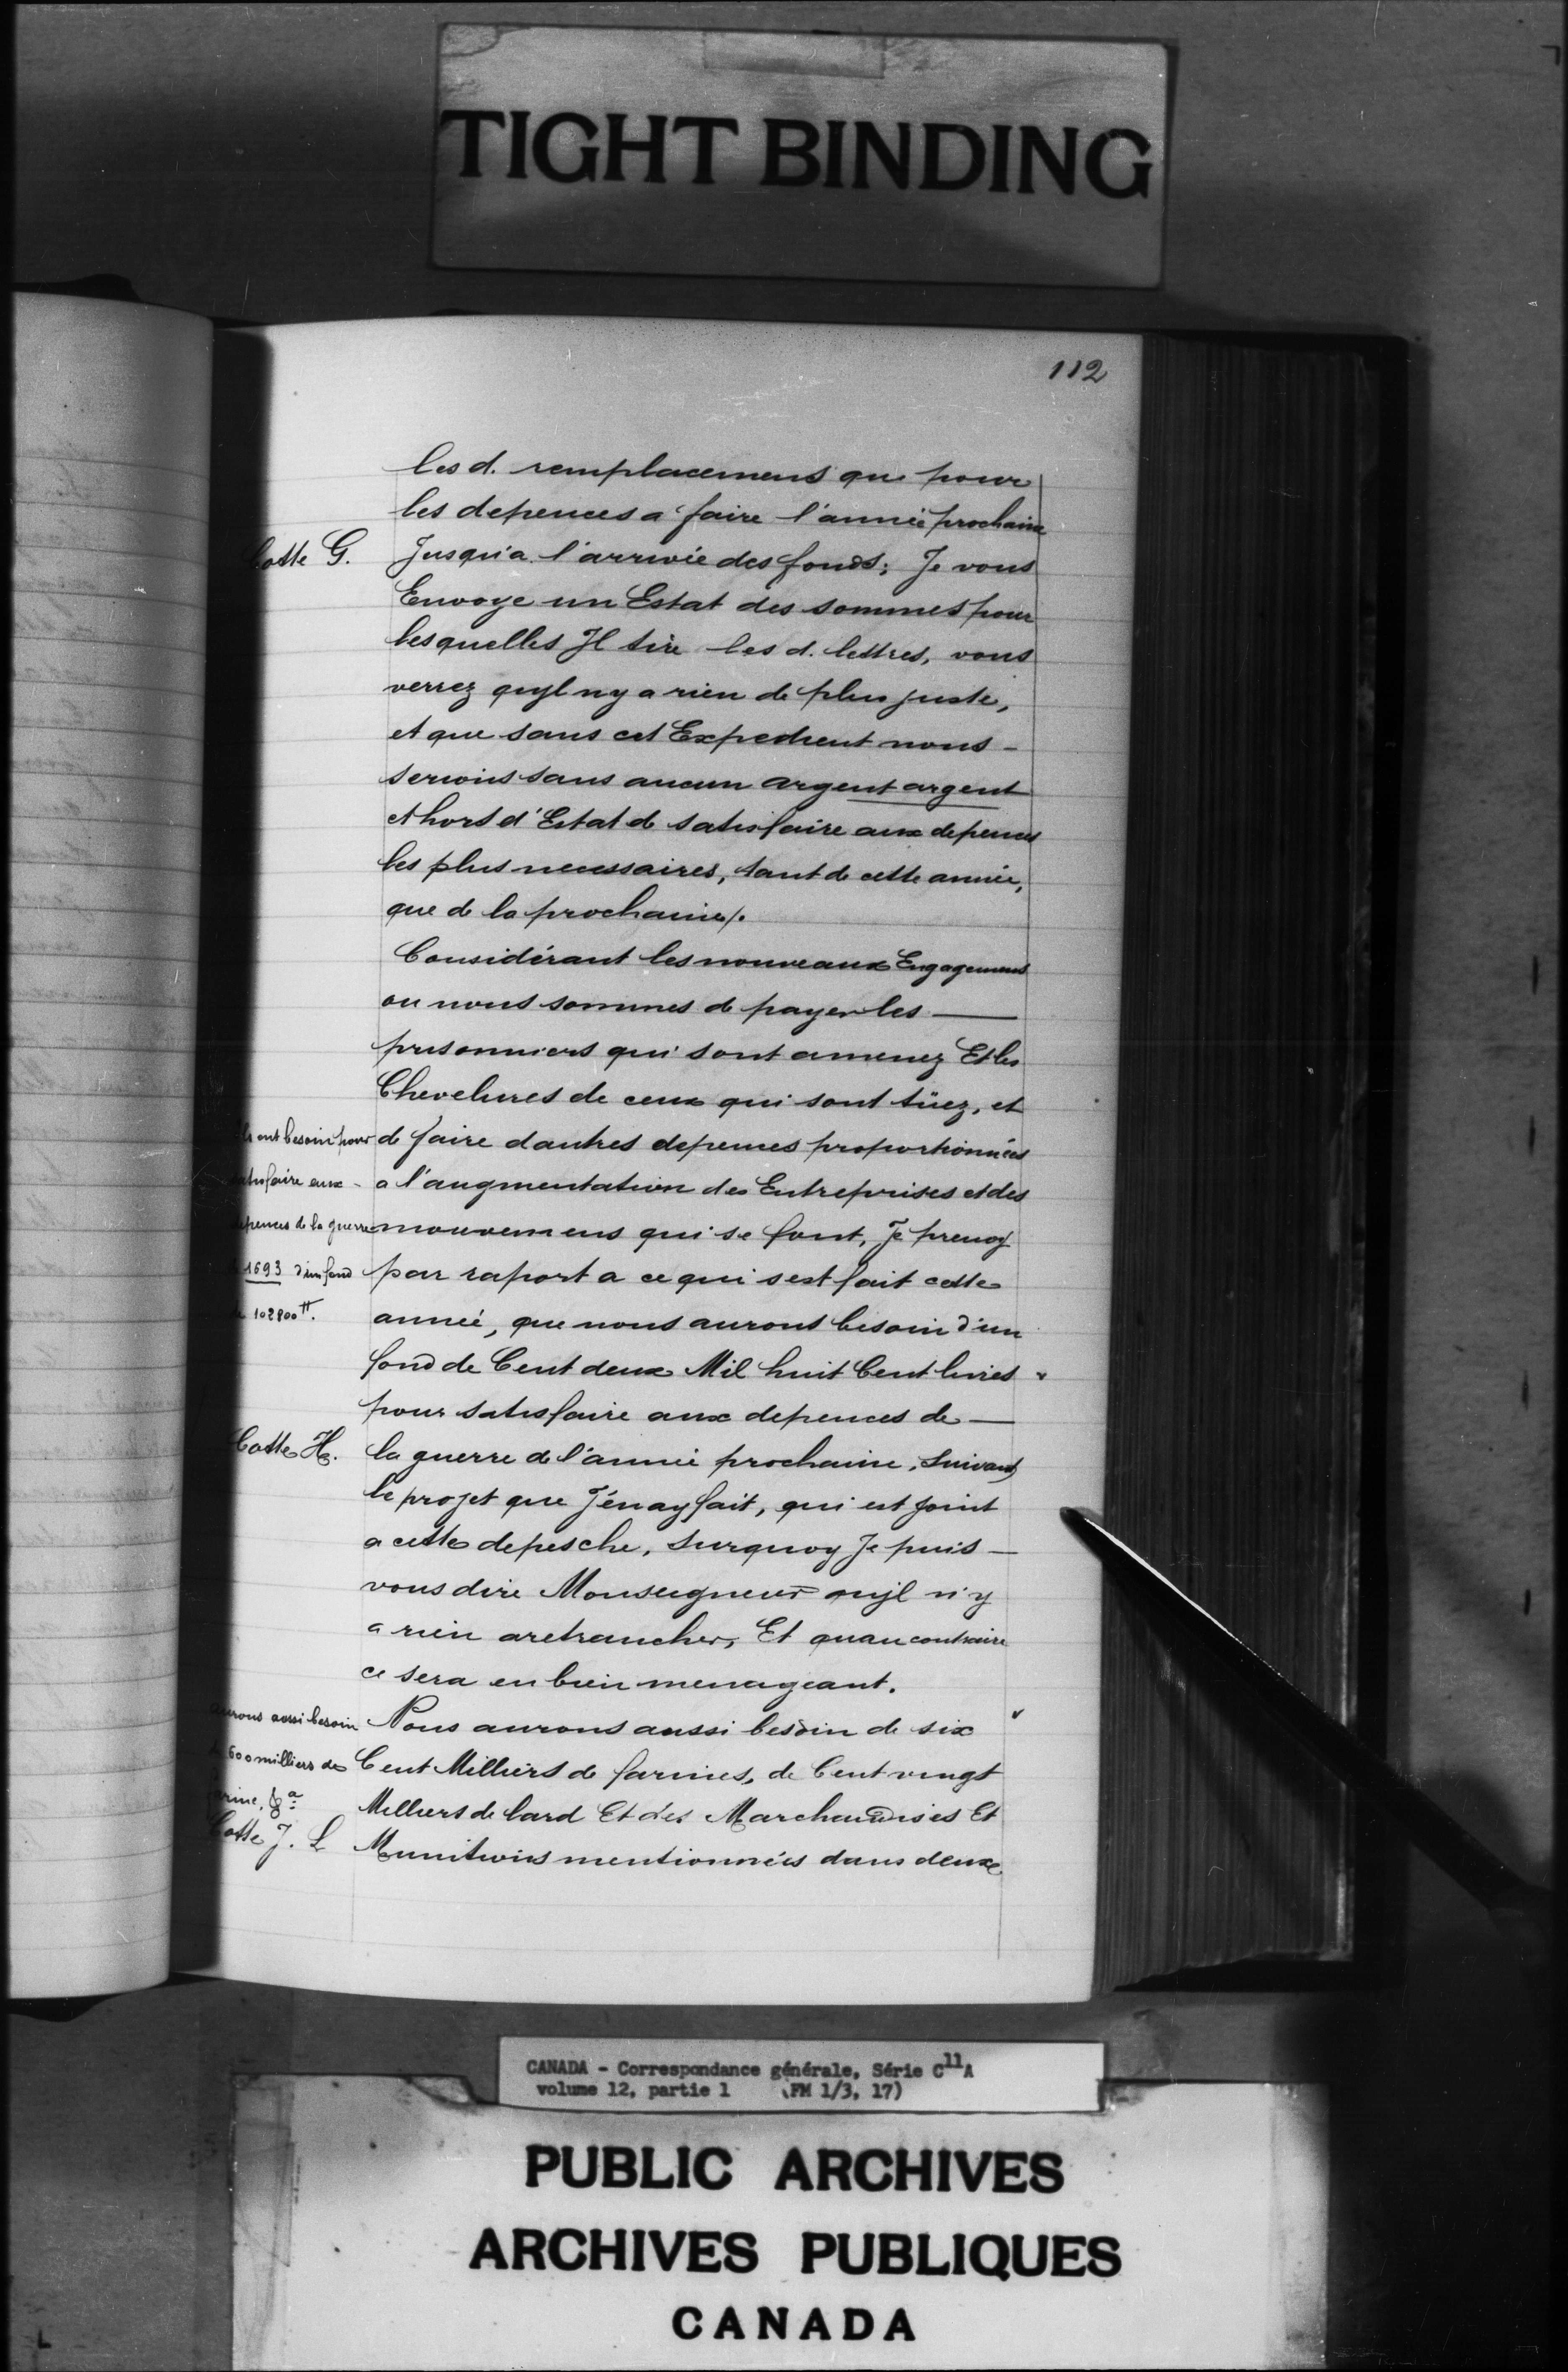 TIGHT BINDING
112
les d. remplacemens que pour
les depences a faire l'année prochaine
Cotte G.
Jusqu'a l'arrivée des fonds; Je vous
Envoye un Estat des sommes pour
lesquelles Jl tire les d. lettres, vous
verrez qujl ny a rien de plus juste,
et que sans cet Expedient nous -
serions sans aucun argent argent
et hors d'Estat de satisfaire aux depences
les plus necessaires, tant de cette année,
que de la prochaine/.
Considérant les nouveaux Engagemens
ou nous sommes de payer les —
prisonniers qui sont amenez Et les
Chevelures de ceux qui sont tüez, et
ont besoin pour
de faire dautres depences proportionnées
satisfaire aux -
a l'augmentation des Entreprises et des
depences de la guerre
mouvemens qui se font, Je prevoy
1693 d'un fond
par raport a ce qui s est fait cette
de 102800 ₶.
année, que nous aurons besoin d'un
fond de Cent deux Mil huit Cent livres
pour satisfaire aux depences de —
Cotte H.
la guerre de l'année prochaine, Suivant
le projet que J'énay fait, qui est joint
a cette depesche, surquoy Je puis —
vous dire Monseigneur qujl n'y
a rien aretrancher, Et quau contraire
ce sera en bien menageant.
aurons aussi besoin
Nous aurons aussi besoin de six
de 600 milliers de
Cent Milliers de farines, de Cent vingt
farine, &a
Milliers de lard Et des Marchandises Et
Cotte J. L
Munitions mentionnées dans deux
CANADA - Correspondance générale, Série C11A
volume 12, partie 1 (FM 1/3, 17)
PUBLIC ARCHIVES
ARCHIVES PUBLIQUES
CANADA